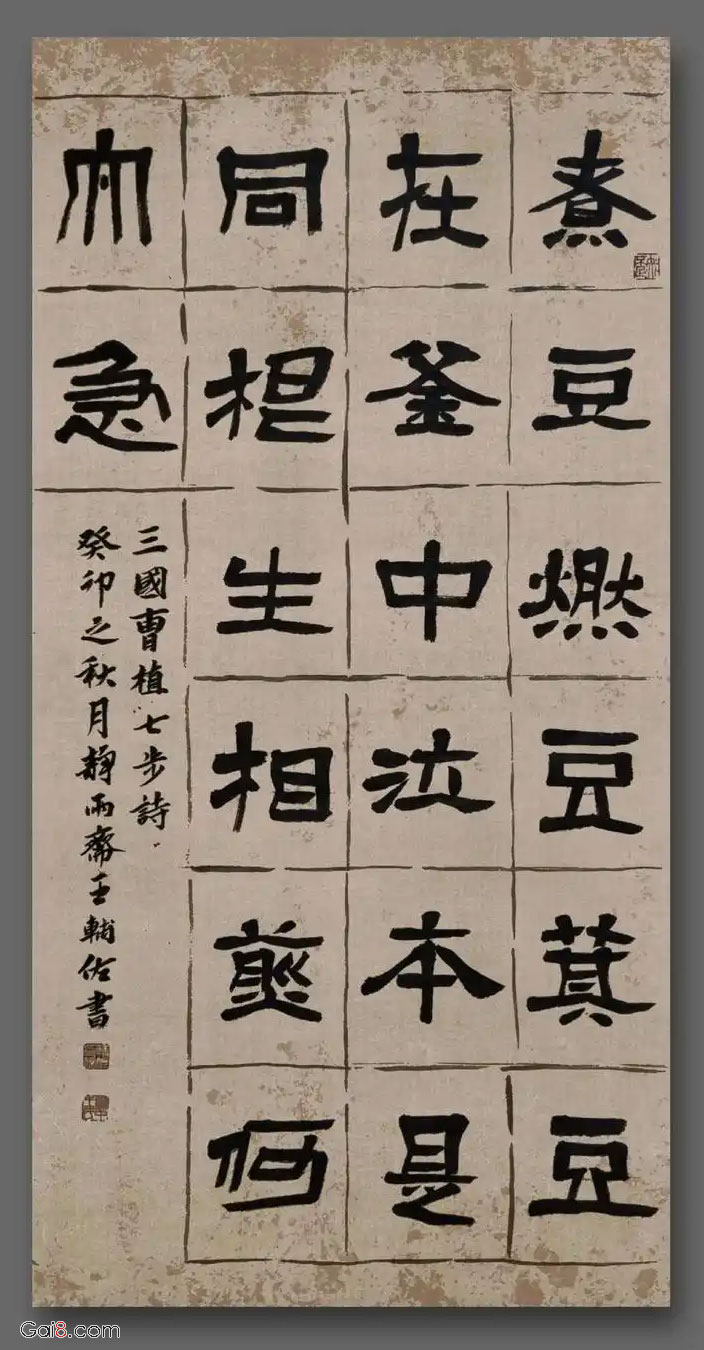 煮豆燃豆萁豆
在釜中泣本是
同根生相煎何
太急
三國曹植七步詩
癸卯之秋月靜雨齋王輔佑書
Gai8.com